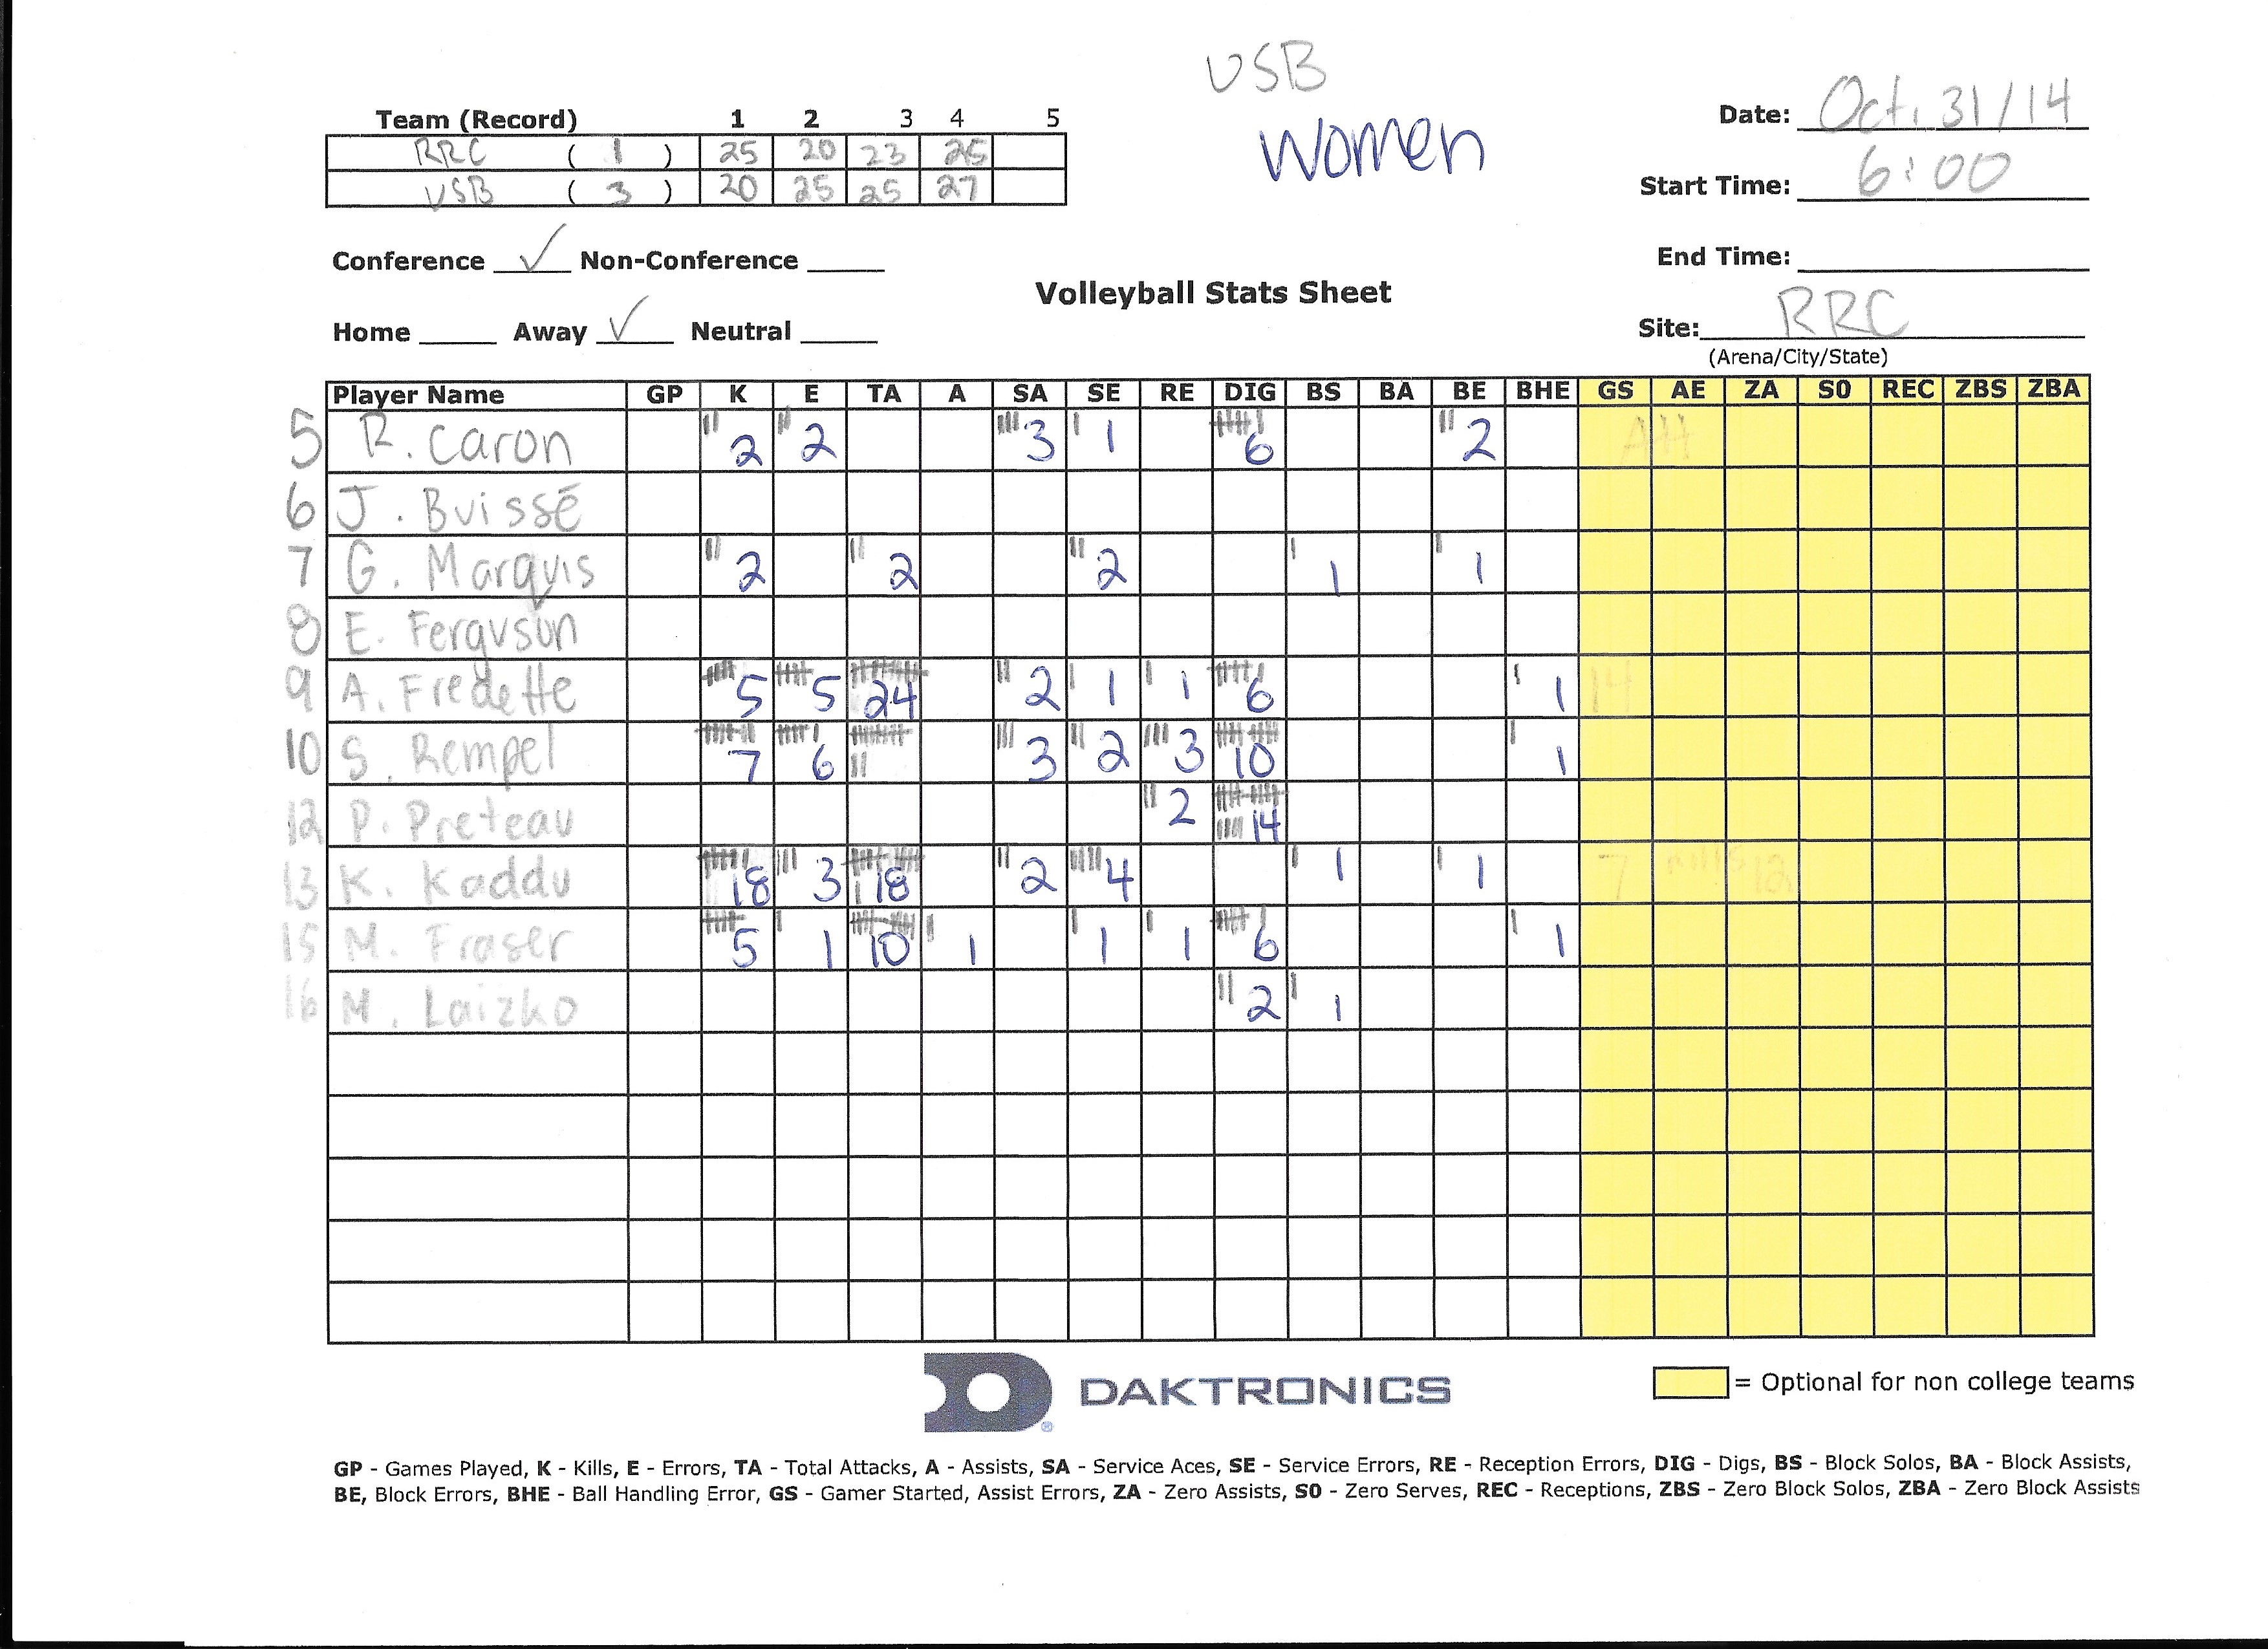 USB
Women
Team (Record) 1 2 3 4 5
RRC ( 1 ) 25 20 23 25
USB ( 3 ) 20 25 25 27
Date: Oct. 31/14
Start Time: 6:00
End Time:
Conference ✓ Non-Conference
Volleyball Stats Sheet
Home Away ✓ Neutral
Site: RRC
(Arena/City/State)
Player Name GP K E TA A SA SE RE DIG BS BA BE BHE GS AE ZA S0 REC ZBS ZBA
5 R. Caron 2 2 3 1 6 2
6 J. Buissé
7 G. Marquis 2 2 2 1 1
8 E. Ferguson
9 A. Fredette 5 5 24 2 1 1 6 1
10 S. Rempel 7 6 3 2 3 10 1
12 P. Preteau 2 14
13 K. Kaddu 18 3 18 2 4 1 1 7 kills 12
15 M. Fraser 5 1 10 1 1 1 6 1
16 M. Laizko 2 1
DAKTRONICS
= Optional for non college teams
GP - Games Played, K - Kills, E - Errors, TA - Total Attacks, A - Assists, SA - Service Aces, SE - Service Errors, RE - Reception Errors, DIG - Digs, BS - Block Solos, BA - Block Assists,
BE, Block Errors, BHE - Ball Handling Error, GS - Gamer Started, Assist Errors, ZA - Zero Assists, S0 - Zero Serves, REC - Receptions, ZBS - Zero Block Solos, ZBA - Zero Block Assists